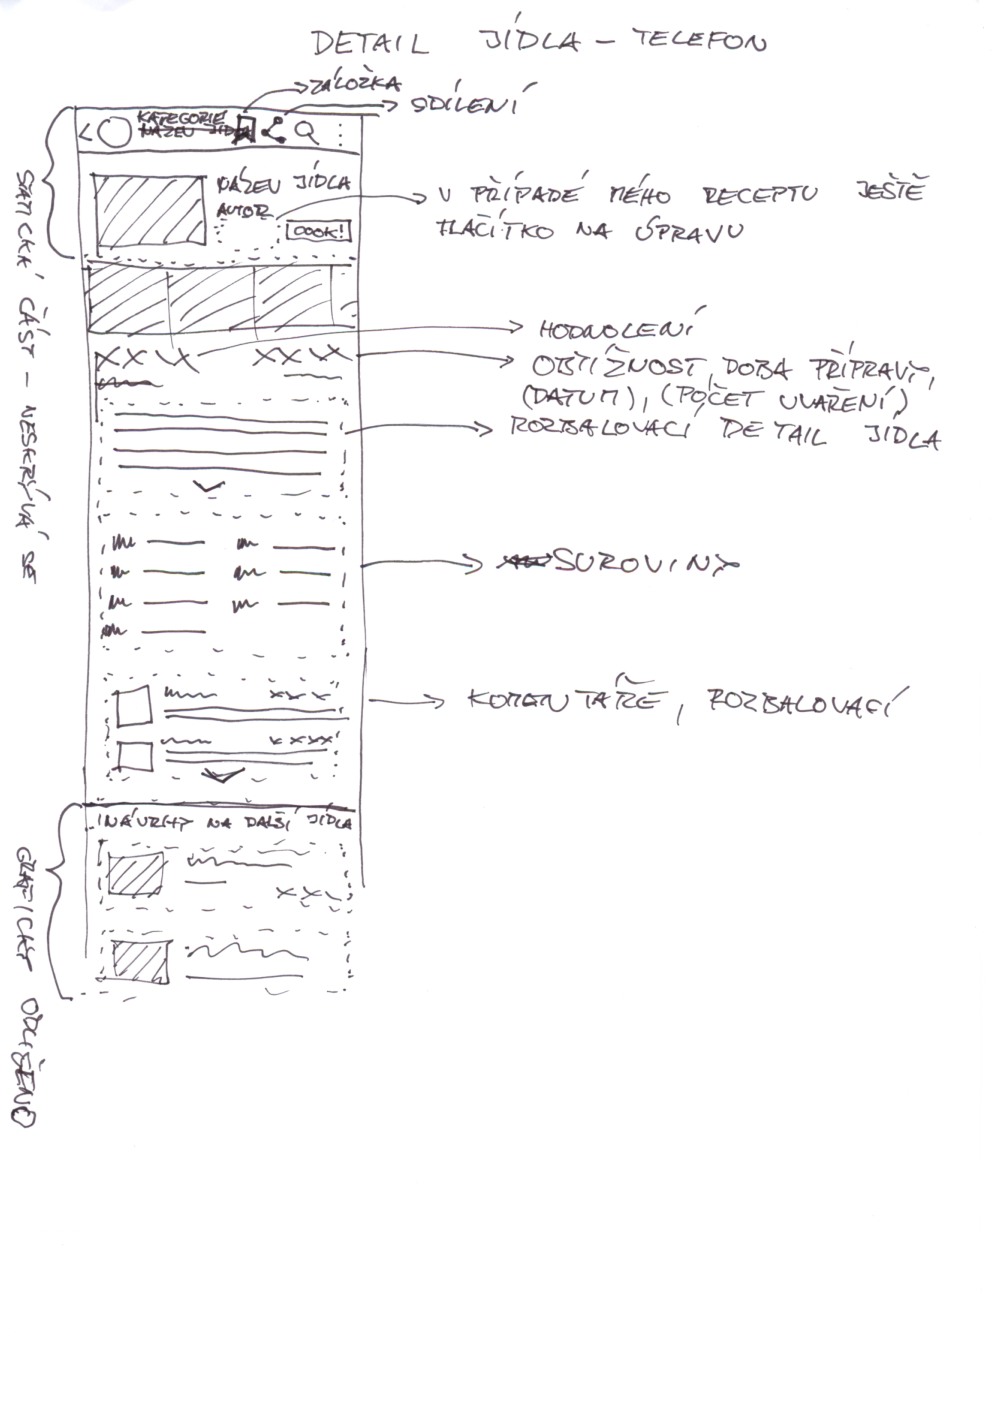 DETAIL JÍDLA - TELEFON
ZÁLOŽKA
SDÍLENÍ
KATEGORIE
NÁZEV JÍDLA
NÁZEV JÍDLA
AUTOR
COOK!
V PŘÍPADĚ MÉHO RECEPTU JEŠTĚ
TLAČÍTKO NA ÚPRAVU
STATICKÁ ČÁST - NESKRÝVÁ SE
HODNOCENÍ
OBTÍŽNOST, DOBA PŘÍPRAVY,
(DATUM), (POČET UVAŘENÍ)
ROZBALOVACÍ DETAIL JÍDLA
SUROVINY
KOMENTÁŘE, ROZBALOVACÍ
NÁVRHY NA DALŠÍ JÍDLA
GRAFICKY ODLIŠENO